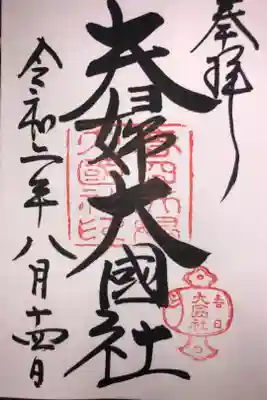 奉拝
夫婦大國社
令和二年八月十四日
春日
大国社